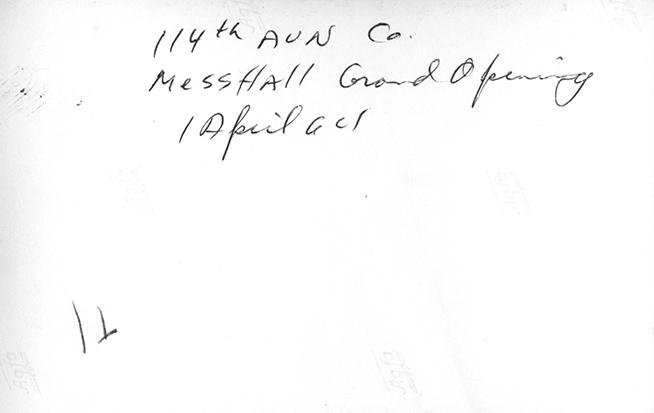 114th AVN Co.
Mess Hall Grand Opening
1 April